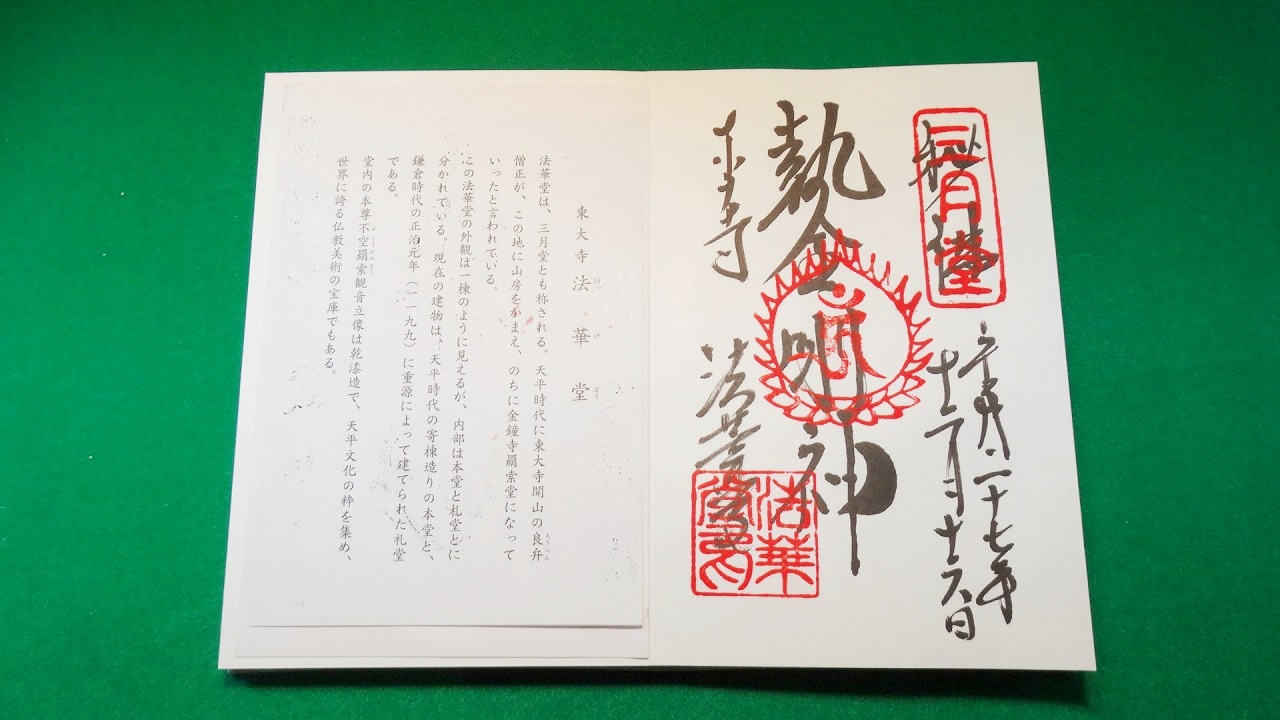 三月堂
平成二十七年
十二月十六日
執金剛神
東大寺 法華堂
法華
堂印
東大寺 法華堂
ほっ け どう
法華堂は、三月堂とも称される。天平時代に東大寺開山の良弁
ろうべん
僧正が、この地に山房をかまえ、のちに金鐘寺羂索堂になって
いったと言われている。
この法華堂の外観は一棟のように見えるが、内部は本堂と礼堂とに
分かれている。現在の建物は、天平時代の寄棟造りの本堂と、
鎌倉時代の正治元年(一一九九)に重源によって建てられた礼堂
である。
堂内の本尊不空羂索観音立像は乾漆造で、天平文化の粋を集め、
ふくうけんさく
世界に誇る仏教美術の宝庫でもある。